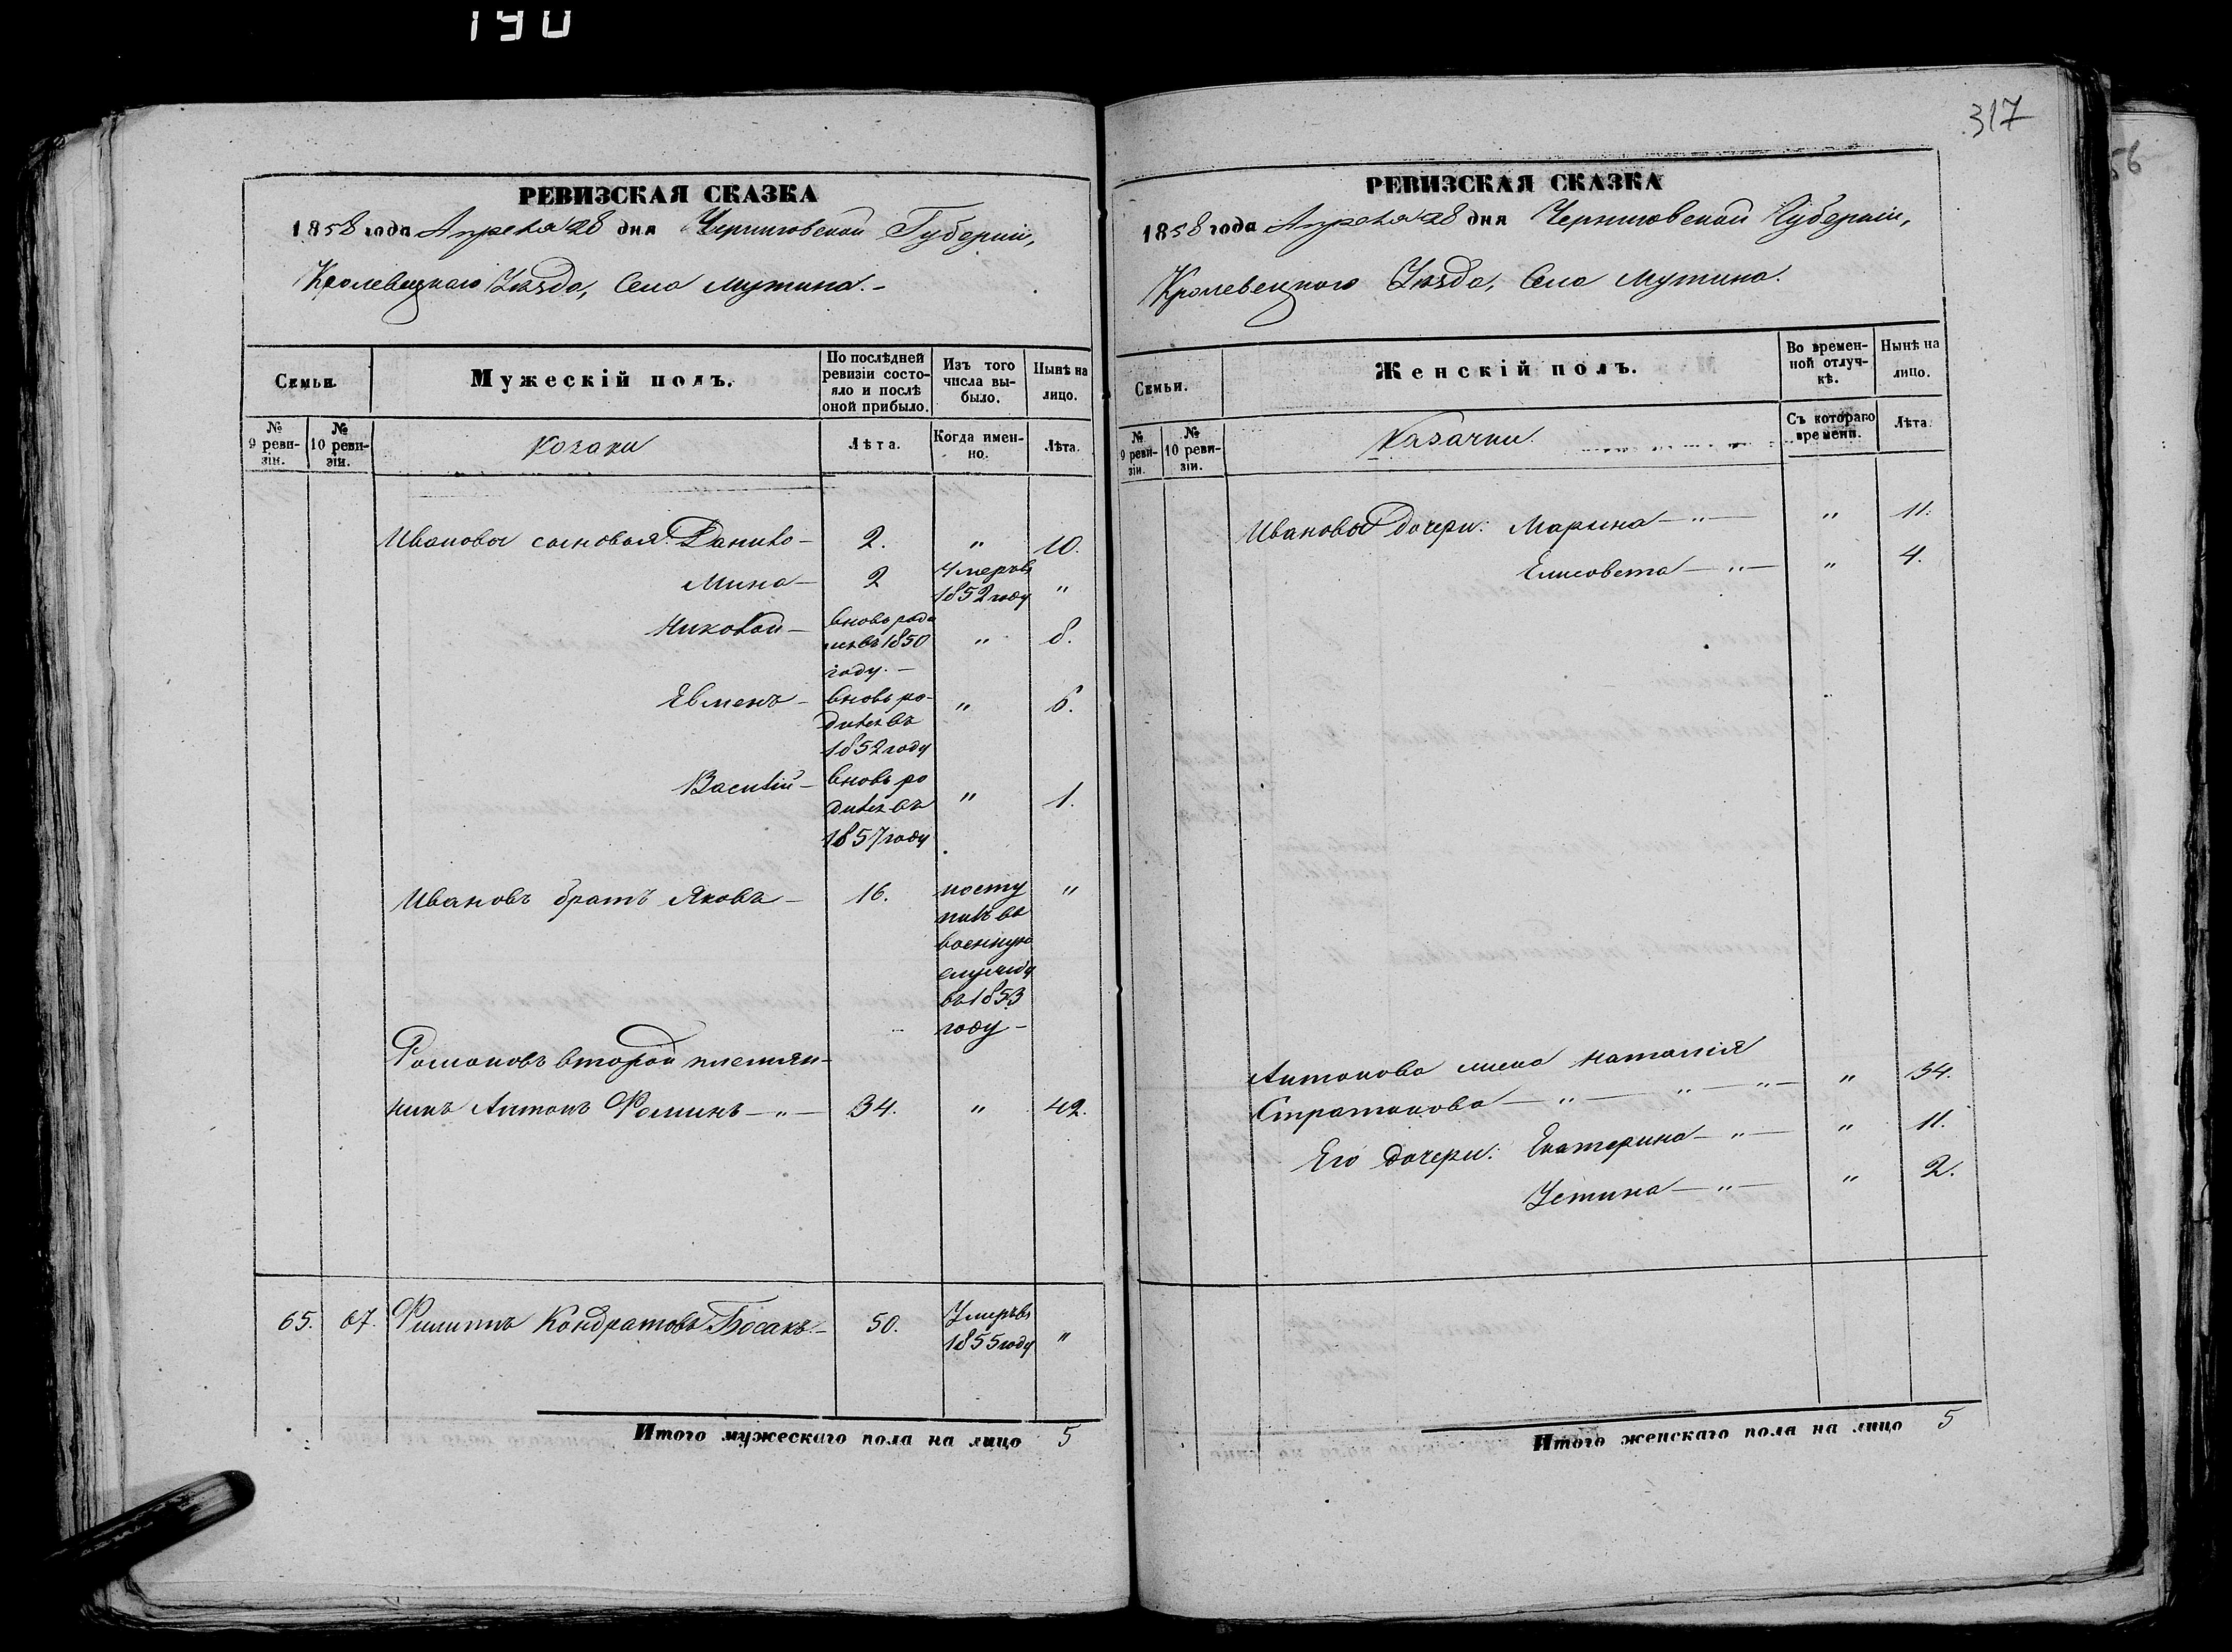 190
РЕВИЗСКАЯ СКАЗКА
1858 года Апреля 28 дня Черниговской Губерніи,
Кролевецкаго Уѣзда, Села Мутина.-
Семьи.
Мужескій полъ.
По послѣдней ревизіи состояло и послѣ оной прибыло.
Изъ того числа выбыло.
Нынѣ на лицо.
№ 9 ревизіи.
№ 10 ревизіи.
Козаки
Лѣта.
Когда именно.
Лѣта.
Ивановы сыновья: Данило - 2. " 10.
Мина - 2 Умеръ въ 1852 году "
Николай - вновь родился въ 1850 году. - " 8.
Евменъ - вновь родился въ 1852 году " 6.
Василій - вновь родился въ 1857 году " 1.
Ивановъ братъ Яковъ - 16. поступилъ въ военную службу въ 1853 году - "
Романовъ второй племян-
никъ Антонъ Фоминъ - " - 34. " 42.
65. 67. Филиппъ Кондратовъ Босакъ - 50. Умеръ въ 1855 году "
Итого мужескаго пола на лицо 5
317
56
РЕВИЗСКАЯ СКАЗКА
1858 года Апреля 28 дня Черниговской Губерніи,
Кролевецкаго Уѣзда, Села Мутина.
Семьи.
Женскій полъ.
Во временной отлучкѣ.
Нынѣ на лицо.
№ 9 ревизіи.
№ 10 ревизіи.
Казачки.
Съ котораго времени.
Лѣта.
Ивановы дочери: Марина - " - " 11.
Елисовета - " - " 4.
Антонова жена Наталія
Стратонова - " - " - " - " 34.
Его дочери: Екатерина - " - " 11.
Устина - " - " 2.
Итого женскаго пола на лицо 5